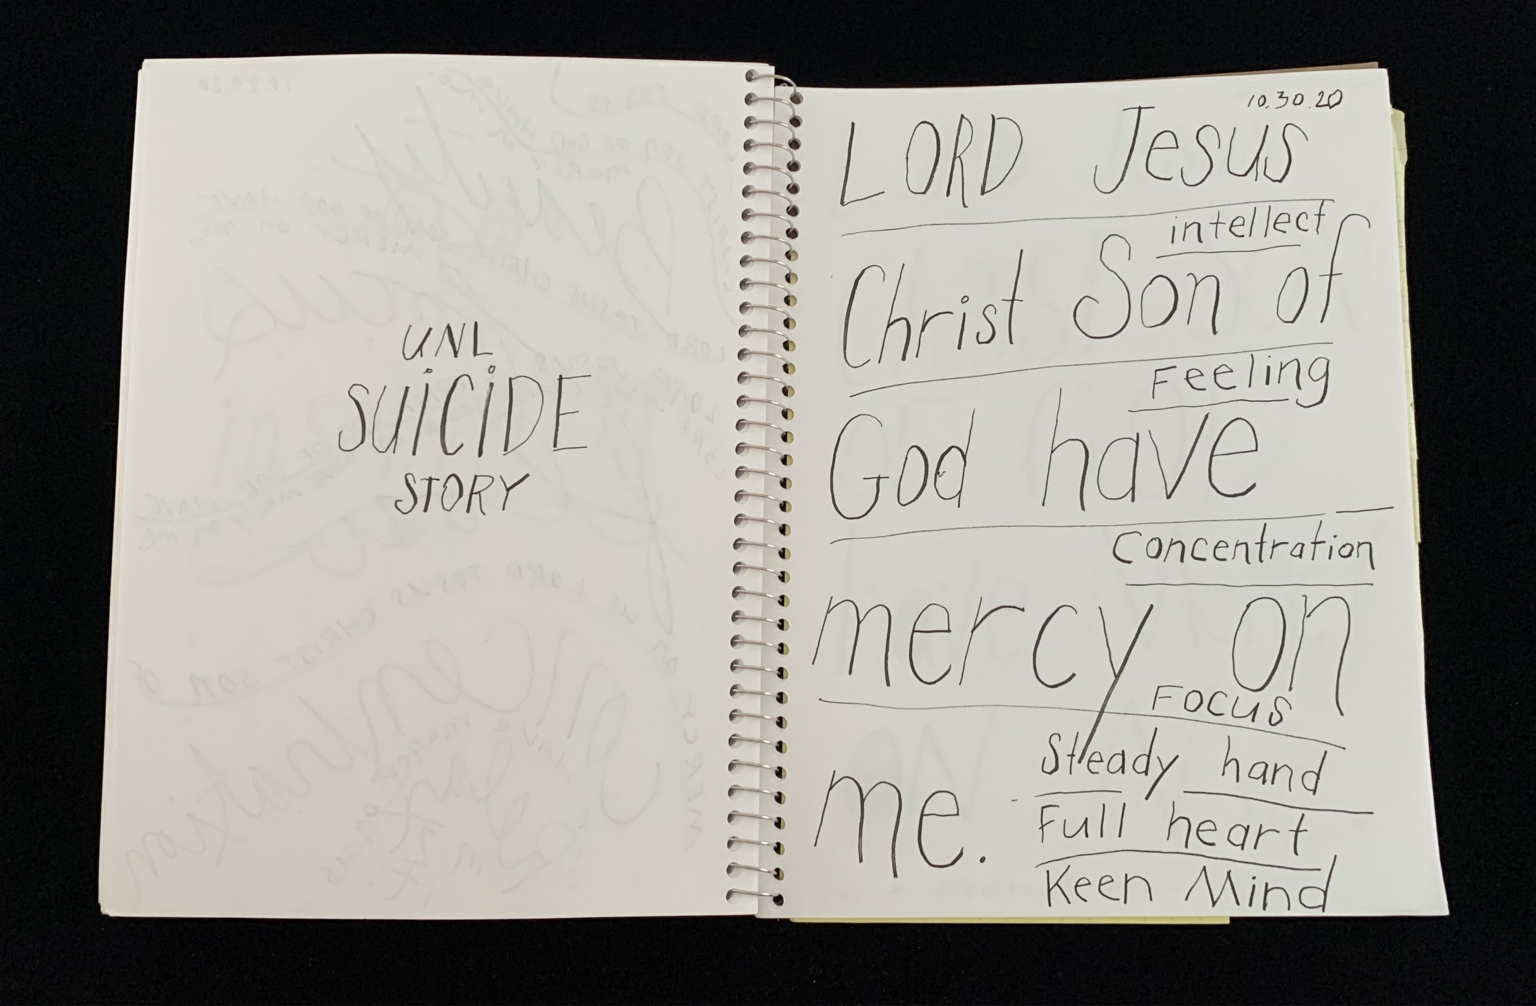 UNL
SUiCiDE
STORY
10.30.20
LORD Jesus
intellect
Christ Son of
Feeling
God have
Concentration
mercy on
Focus
me.
Steady hand
Full heart
Keen Mind